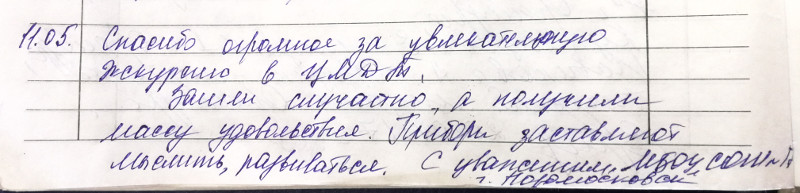 11.05. Спасибо огромное за увлекательную
экскурсию в ЦМДТ.
Зашли случастно, а получили
массу удовольствия. Прибори заставляют
мыслить, развиваться. С уважением, МБОУ СОШ
г. Новомосковск